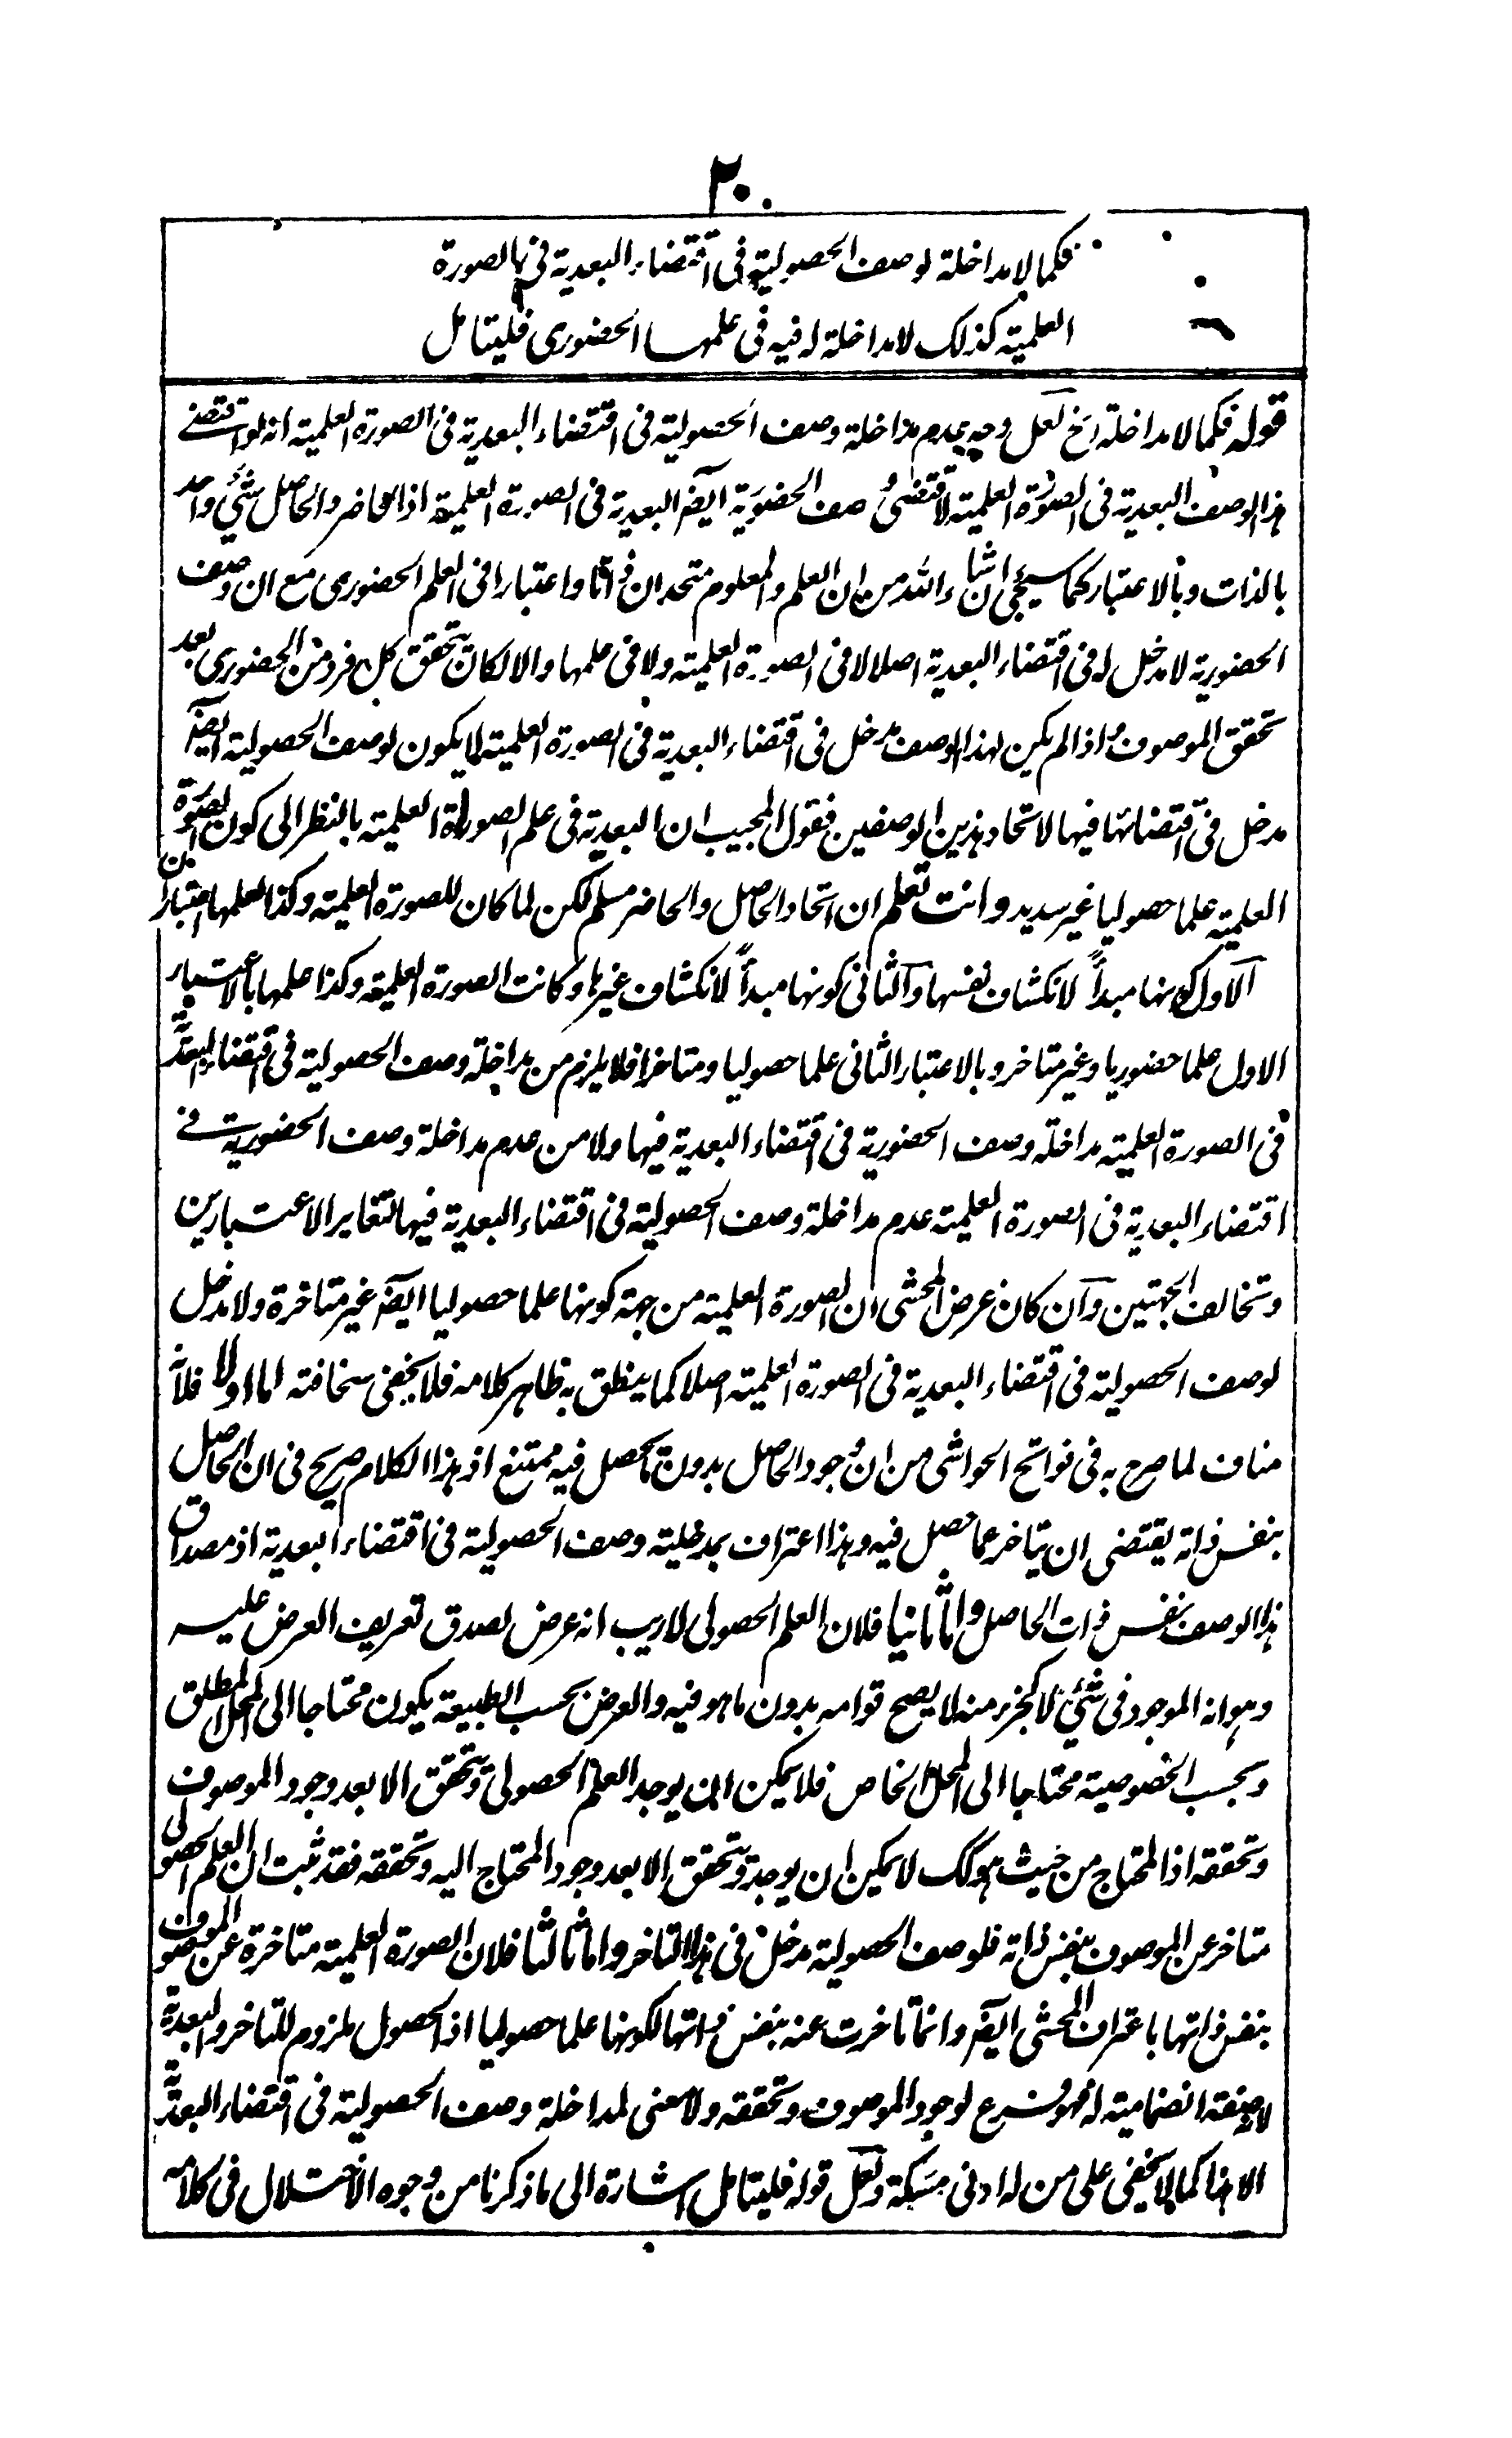 ٢٠
فكما لا مداخلة لوصف الحصولية في اقتضاء البعدية في الصورة
العلمية كذلك لا مداخلة له فيه في علمها الحضوري فليتامل
قوله فكما لا مداخلة الخ لعل وجه عدم مداخلة وصف الحصولية في اقتضاء البعدية في الصورة العلمية انه لو اقتضى
هذا الوصف البعدية في الصورة العلمية لاقتضى وصف الحضورية ايضا البعدية في الصورة العلمية اذ الحاضر والحاصل شيء واحد
بالذات وبالاعتبار كما سيجئ ان شاء الله من ان العلم والمعلوم متحدان ذاتا واعتبارا في العلم الحضوري مع ان وصف
الحضورية لا مدخل له في اقتضاء البعدية اصلا لا في الصورة العلمية ولا في علمها والا لكان تحقق كل فرد من الحضوري بعد
تحقق الموصوف واذا لم يكن لهذا الوصف مدخل في اقتضاء البعدية في الصورة العلمية لا يكون لوصف الحصولية ايضا
مدخل في اقتضائها فيها لاتحاد هذين الوصفين فقول المجيب ان البعدية في علم الصورة العلمية بالنظر الى كون الصورة
العلمية علما حصوليا غير سديد وانت تعلم ان اتحاد الحاصل والحاضر مسلم لكن لما كان للصورة العلمية وكذا لعلمها اعتباران
الاول كونها مبدأً لانكشاف نفسها والثاني كونها مبدأً لانكشاف غيرها وكانت الصورة العلمية وكذا علمها بالاعتبار
الاول علما حضوريا وغير متاخر وبالاعتبار الثاني علما حصوليا ومتاخرا فلا يلزم من مداخلة وصف الحصولية في اقتضاء البعدية
في الصورة العلمية مداخلة وصف الحضورية في اقتضاء البعدية فيها ولا من عدم مداخلة وصف الحضورية في
اقتضاء البعدية في الصورة العلمية عدم مداخلة وصف الحصولية في اقتضاء البعدية فيها لتغاير الاعتبارين
وتخالف الجهتين وان كان غرض المحشى ان الصورة العلمية من جهة كونها علما حصوليا ايضا غير متاخرة ولا مدخل
لوصف الحصولية في اقتضاء البعدية في الصورة العلمية اصلا كما ينطق به ظاهر كلامه فلا يخفى سخافته اما اولا فلانه
مناف لما صرح به في فواتح الحواشي من ان وجود الحاصل بدون ما يحصل فيه ممتنع اذ هذا الكلام صريح في ان الحاصل
بنفس ذاته يقتضى ان يتاخر عما حصل فيه وهذا اعتراف بمدخلية وصف الحصولية في اقتضاء البعدية اذ مصداق
هذا الوصف نفس ذات الحاصل واما ثانيا فلان العلم الحصولي لا ريب انه عرض لصدق تعريف العرض عليه
وهو انه الموجود في شيء لا كجزء منه لا يصح قوامه بدون ما هو فيه والعرض بحسب الطبيعة يكون محتاجا الى المحل المطلق
وبحسب الخصوصية محتاجا الى المحل الخاص فلا يمكن ان يوجد العلم الحصولي ويتحقق الا بعد وجود الموصوف
وتحققه اذ المحتاج من حيث هو كك لا يمكن ان يوجد ويتحقق الا بعد وجود المحتاج اليه وتحققه فقد ثبت ان العلم الحصولي
متاخر عن الموصوف بنفس ذاته فلوصف الحصولية مدخل في هذا التاخر واما ثالثا فلان الصورة العلمية متاخرة عن الموصوف
بنفس ذاتها باعتراف المحشى ايضا وانما تاخرت عنه بنفس ذاتها لكونها علما حصوليا اذ الحصول ملزوم للتاخر والبعدية
لا صفة انضمامية له فهو فرع لوجود الموصوف وتحققه ولا معنى لمداخلة وصف الحصولية في اقتضاء البعدية
الا هذا كما لا يخفى على من له ادنى مسكة ولعل قوله فليتامل اشارة الى ما ذكرنا من وجوه الاختلال في كلامه